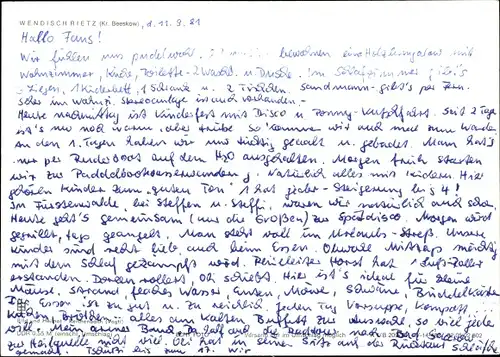 WENDISCH RIETZ (Kr. Beeskow), d. 11.9.81
Hallo Fans!
Wir fühlen uns pudelwohl. bewohnen eine Holzbungalow mit
Wohnzimmer Küche, Toilette - 2 Waschb. u. Dusche. Im Schlafzimmer gibt's
Liegen, 1 Kinderbett, 1 Schrank u. 2 Tischchen. Sandmann gibt's per Fern-
seher im Wohnzi. Stereoanlage ist auch vorhanden -
Heute nachmittag ist Kinderfest mit Disco u. Ponny-Kutschfahrt. Seit 2 Tagen
ist's nur noch warm, aber trübe. So kommen wir auch mal zum Wandern
an den 1. Tagen haben wir uns tüchtig geaalt u. gebadet. Man hat's
nur per Ruderboot auf dem H2O ausgehalten. Morgen früh starten
wir zur Paddelbootswanderung. Natürlich alles mit Kindern. Hier
gehören Kinder zum "guten Ton" 1 hat jeder - Steigerung bis 4!
Im Fürstenwalde, bei Steffen u. Steffi, waren wir natürlich auch schon.
Heute geht's gemeinsam (nur die Großen) zur Spätdisco. Morgen wird
gegrillt, tags geangelt. Man steht voll im Urlaubs-Streß. Unsere
Kinder sind recht lieb, auch beim Essen. Obwohl Mittags mächtig
mit dem Schlaf gekämpft wird. Horst hat 1
erstanden. Daneben rollert, ob schiebt. Hier ist's ideal für kleine
Mäuse. Strand, flaches Wasser Enten, Möwe, Schwäne, Buddelkasten
Essen ist zu gut u. zu reichlich jeden Tag Vorsuppe, Kompott
Kuchen, Brötchen alles am kalten Buffett zur Auswahl, so viel jede
will. Mein armer Bauch nach Bad
zur will. hat in seine
gemacht. Tschüß bis zum 17. Wir